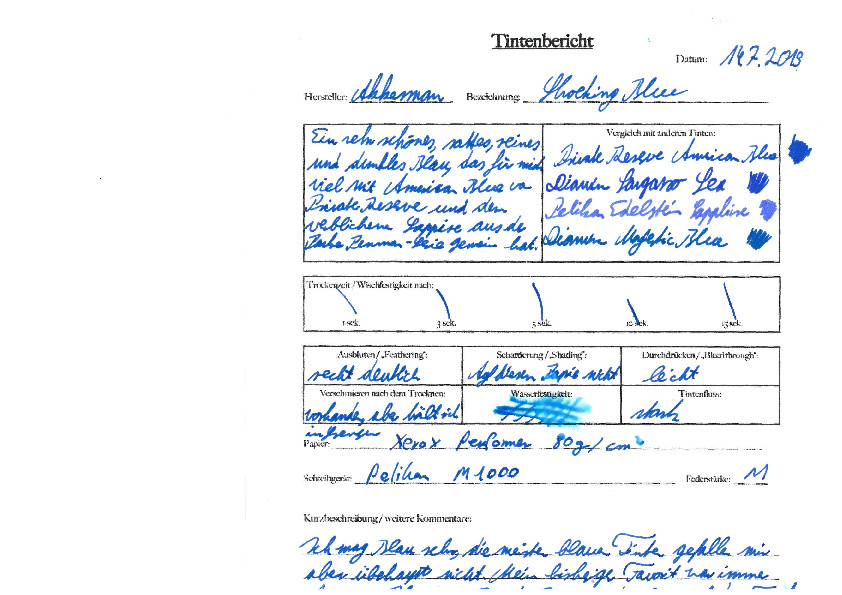 Tintenbericht
Datum: 14.7.2013
Hersteller: Akkerman Bezeichnung: Shocking Blue
Ein sehr schönes, sattes, reines
und dunkles Blau, das für mich
viel mit American Blue von
Private Reserve und dem
Sappire aus de
gemein hat.
Vergleich mit anderen Tinten:
Private Reserve American Blue
Diamin Sargasso Sea
Pelikan Edelstein Sapphire
Diamin Majestic Blue
Trockenzeit / Wischfestigkeit nach:
1 sek. 3 sek. 5 sek. 10 sek. 15 sek.
Ausbluten / „Feathering": Schattierung / „Shading": Durchdrücken / „Bleedthrough":
recht deutlich Auf diesem Papier nicht leicht
Verschmieren nach dem Trocknen: Wasserfestigkeit: Tintenfluss:
vorhanden, aber hält sich stark
in Grenzen
Papier: Xerox Performer 80g/cm²
Schreibgerät: Pelikan M1000 Federstärke: M
Kurzbeschreibung / weitere Kommentare:
Ich mag Blau sehr, die meisten blauen Tinten gefallen mir
aber überhaupt nicht. Mein bisheriger Favorit war immer